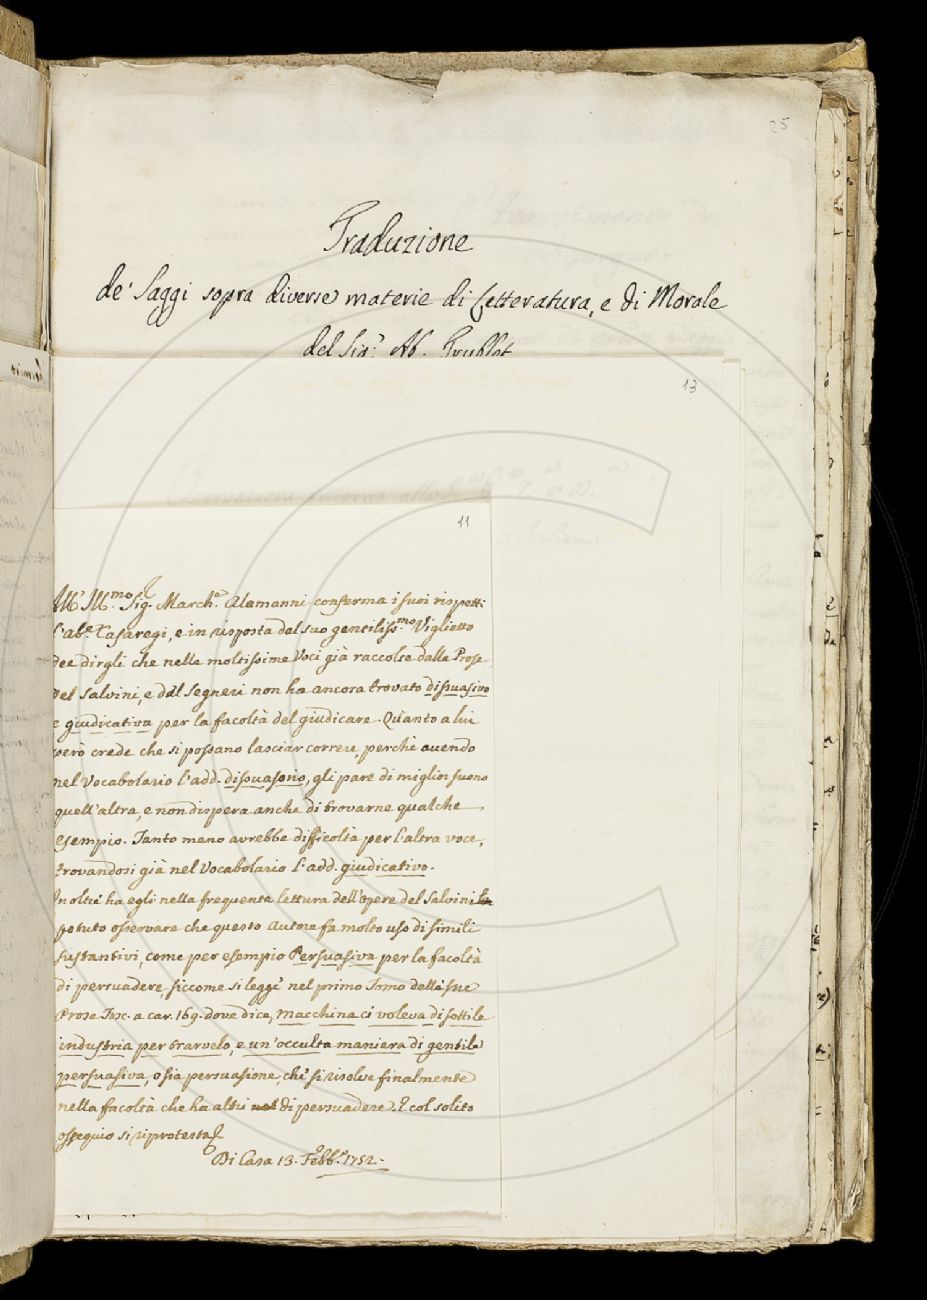 25
Traduzione
de' Saggi sopra diverse materie di Letteratura, e di Morale
del Sig.r Ab. Trublet
13
11
All' Ill.mo Sig. March.e Alamanni conferma i suoi rispetti
l'ab.e Casaregi, e in risposta del suo gentiliss.mo Viglietto
dee dirgli che nelle moltissime Voci già raccolte dalle Prose
del Salvini, e dal Segneri non ha ancora trovato dissuasivo
e giudicativa per la facoltà del giudicare. Quanto a lui
però crede che si possano lasciar correre, perchè avendo
nel Vocabolario l'add. dissuasorio, gli pare di miglior suono
quell'altra, e non dispera anche di trovarne qualche
esempio. Tanto meno avrebbe difficoltà per l'altra voce,
trovandosi già nel Vocabolario l'add. giudicativo.
Inoltre ha egli nella frequente lettura dell'opere del Salvini
potuto osservare che questo Autore fa molto uso di simili
sustantivi, come per esempio Persuasiva per la facoltà
di persuadere, siccome si legge nel primo Tomo delle sue
Prose Tosc. a car. 169. dove dice, macchina ci voleva di sottile
industria per trarvelo, e un'occulta maniera di gentile
persuasiva, o sia persuasione, che si risolve finalmente
nella facoltà che ha altri di persuadere. E col solito
ossequio si riprotesta
Di Casa 13. Febb.o 1752.